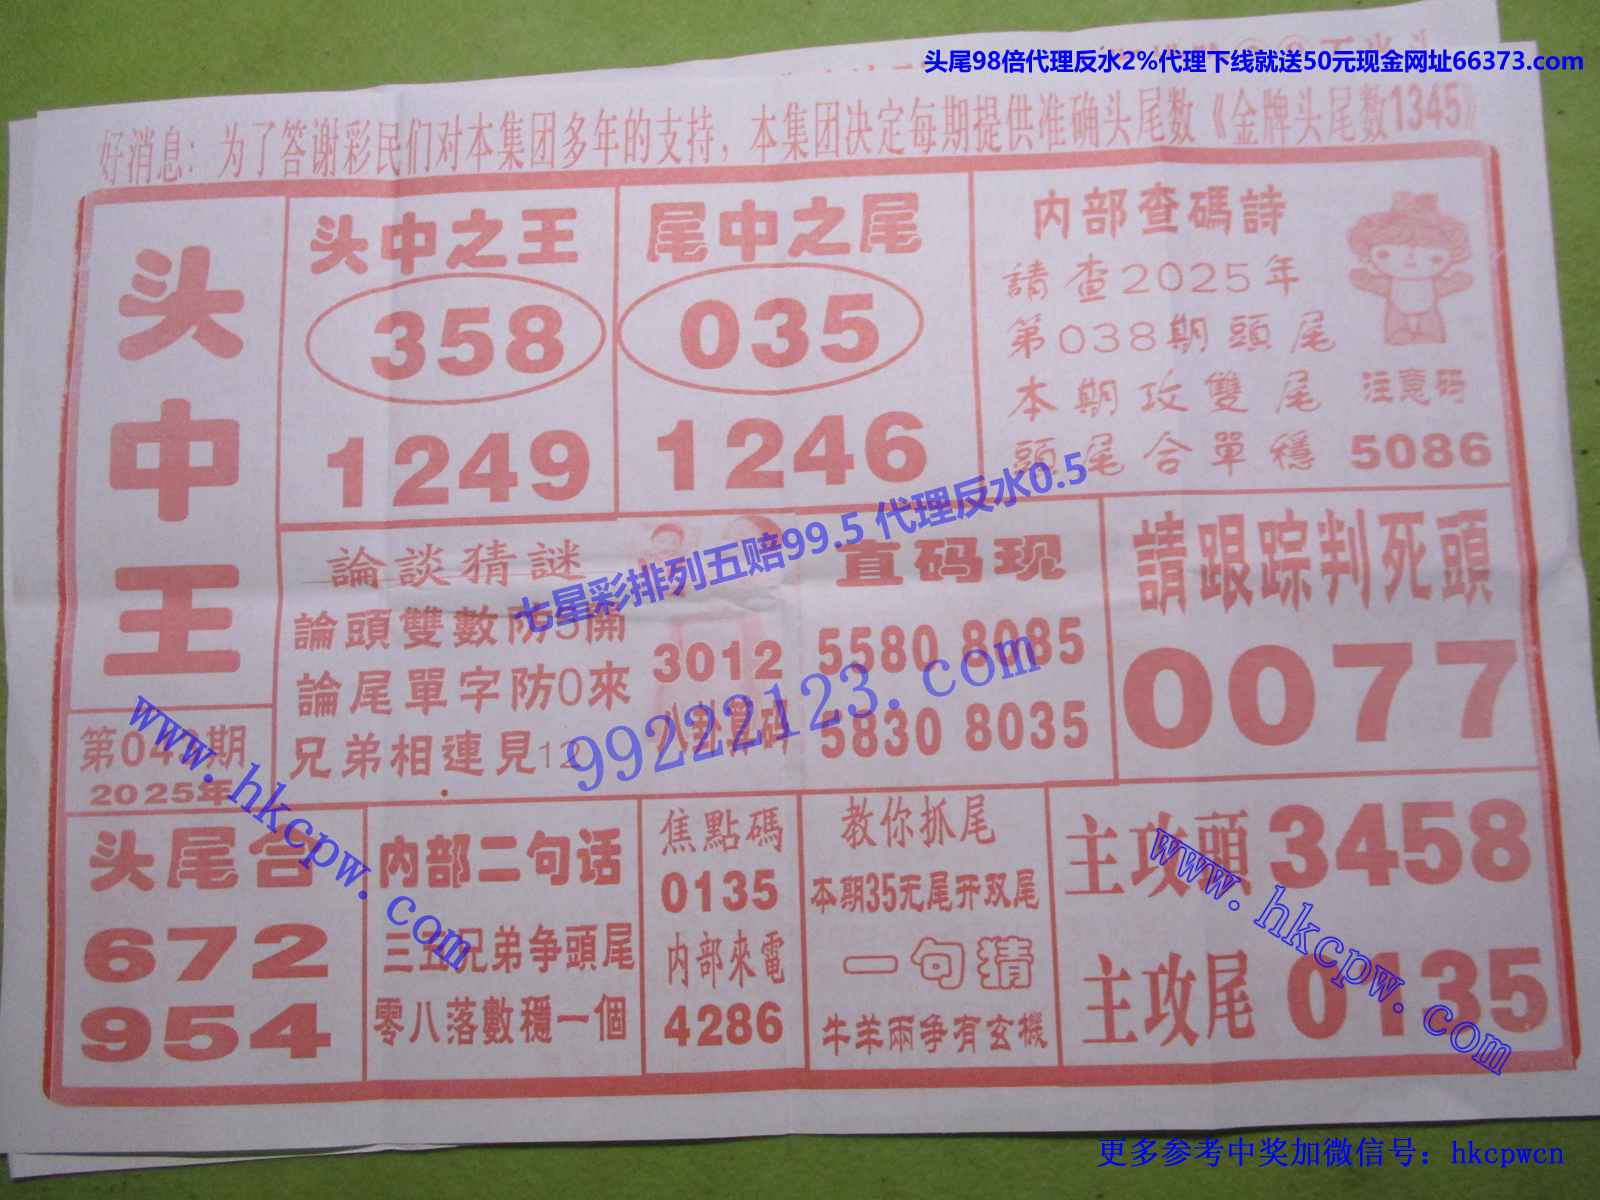 头尾98倍代理反水2%代理下线就送50元现金网址66373.com
好消息：为了答谢彩民们对本集团多年的支持，本集团决定每期提供准确头尾数《金牌头尾数1345》
头中王
第04 期
2025年
头中之王
358
1249
尾中之尾
035
1246
内部查碼詩
請查2025年
第038期頭尾
本期攻雙尾
頭尾合單穩
注意码
5086
論談猜謎
論頭雙數防5開
論尾單字防0來
兄弟相連見12
3012
八卦算码
直码现
5580 8085
5830 8035
請跟踪判死頭
0077
七星彩排列五赔99.5 代理反水0.5
99222123.com
www.hkcpw.com
头尾合
672
954
内部二句话
三五兄弟争頭尾
零八落數穩一個
焦點碼
0135
内部來電
4286
教你抓尾
本期35无尾开双尾
一句猜
牛羊兩争有玄機
主攻頭 3458
主攻尾 0135
www.hkcpw.com
更多参考中奖加微信号：hkcpwcn